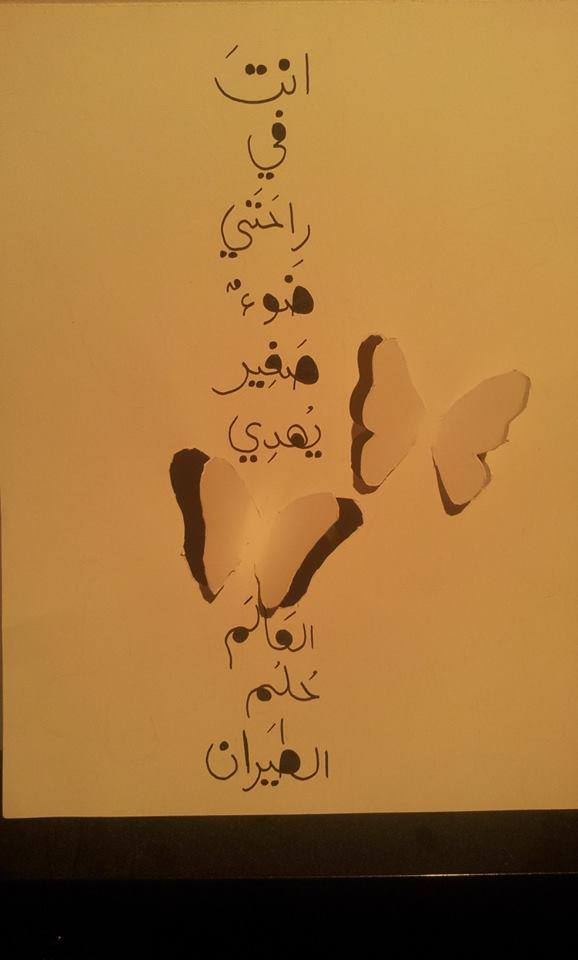 انتَ
في
راحَتَي
ضَوءٌ
صَغِير
يُهدِي
العَالَم
حُلُم
الطَيَران